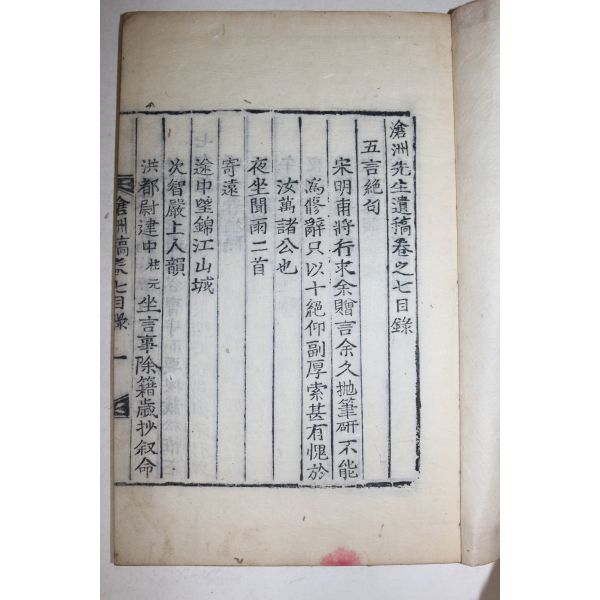 滄洲先生遺稿卷之七目錄
五言絶句
宋明甫將行求余贈言余久抛筆硏不能
爲修辭只以十絶仰副厚索甚有愧於
汝萬諸公也
夜坐聞雨二首
寄遠
途中望錦江山城
次智嚴上人韻
洪都尉建中柱元坐言事除籍歲抄叙命
滄洲稿卷七目錄 一